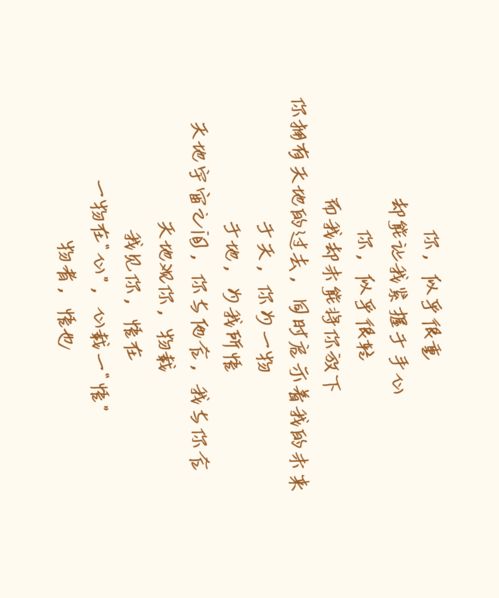 你，似乎很重
却能让我紧握于手心
你，似乎很轻
而我却未能将你放下
你拥有天地的过去，同时启示着我的未来
于天，你为一物
于地，为我所悟
天地宇宙之间，你与他言，我与你言
天地观你，物载
我见你，悟在
一物在“心”，心载一“悟”
物者，悟也